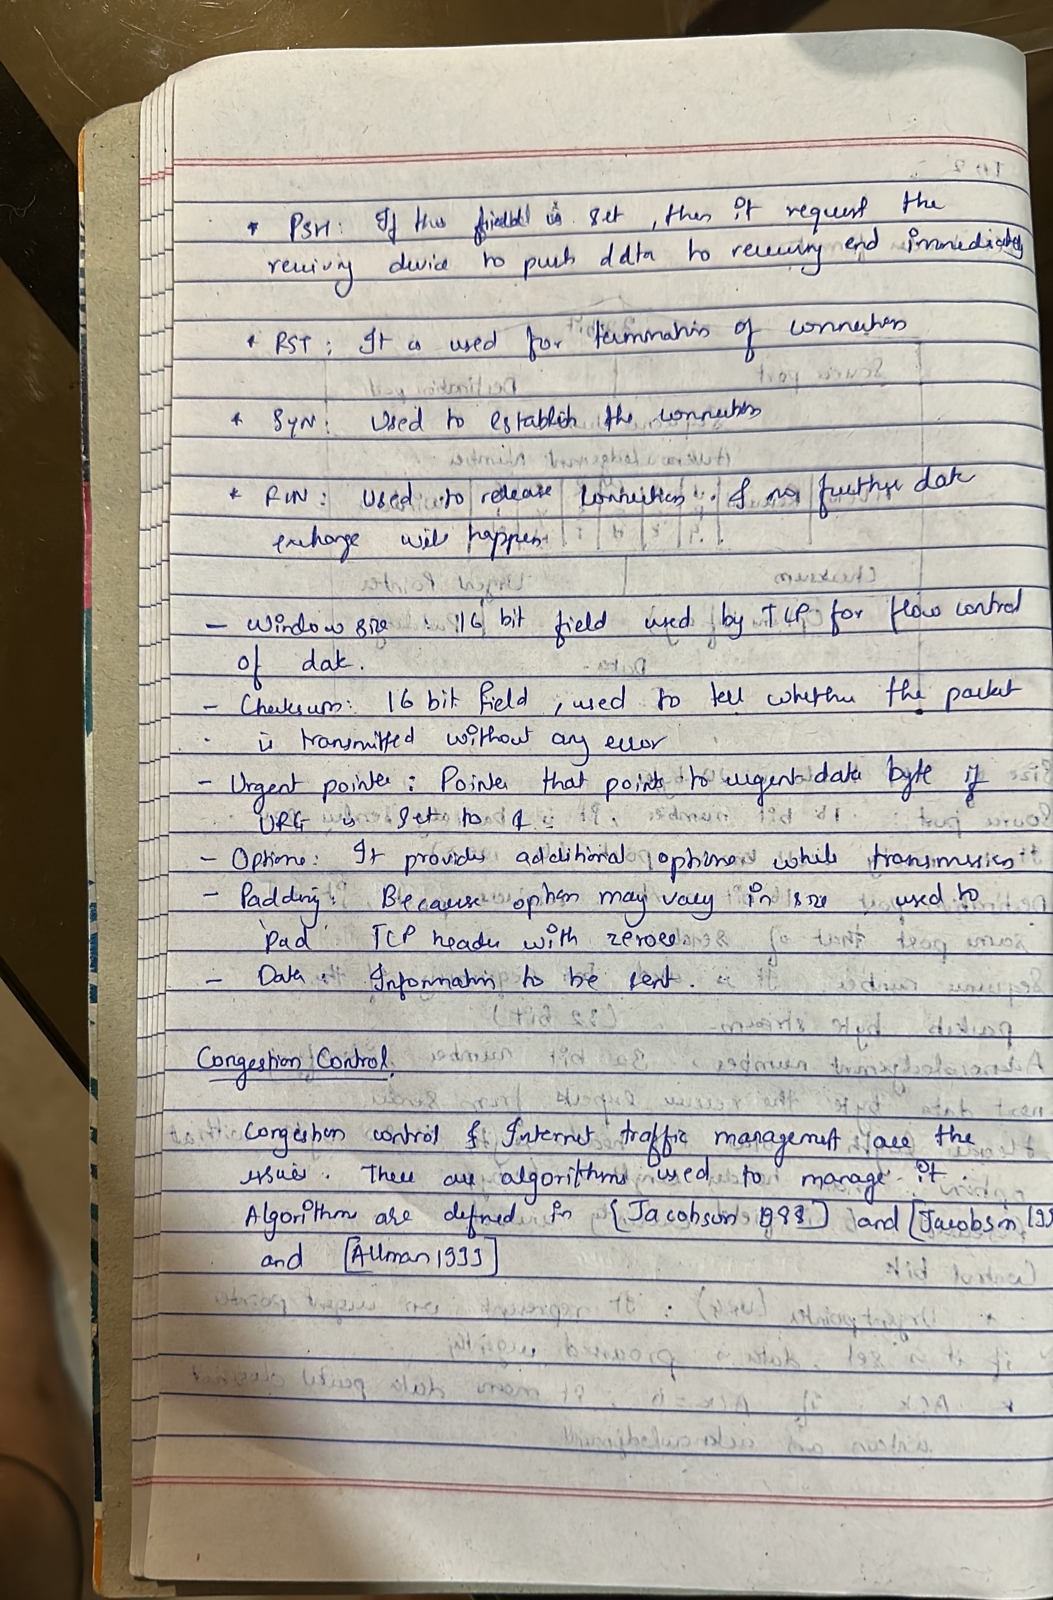 * PSH: If this field is set, then it request the
reciving device to push data to receiving end immediately
* RST: It is used for termination of connection
* SYN: Used to establish the connection
* FIN: Used to release connection. & no further data
exchange will happen
- Window size : 16 bit field used by TCP for flow control
of data.
- Checksum: 16 bit field, used to tell whether the packet
is transmitted without any error
- Urgent pointer: Pointer that points to urgent data byte if
URG is set to 1
- Options: It provides additional options while transmission
- Padding: Because option may vary in size, used to
pad TCP header with zeroes
- Data: Information to be sent.
Congestion Control
Congestion control & Internet traffic management are the
issues. There are algorithms used to manage it.
Algorithm are defined in [Jacobson 1988] and [Jacobson 199
and [Allman 1999]